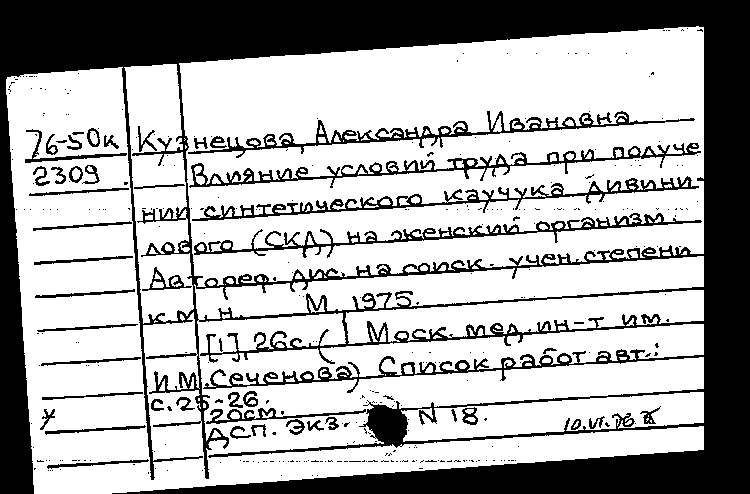 76-50к Кузнецова, Александра Ивановна
2309 Влияние условий труда при получе
нии синтетического каучука дивини-
лового (СКД) на женский организм.
Автореф. дис. на соиск. учен. степени
к.м.н. М., 1975.
[1], 26с. (I Моск. мед. ин-т им.
И.М. Сеченова) Список работ авт.:
с. 25-26.
20см.
у ДСП. Экз. N 18. 10.VI.76